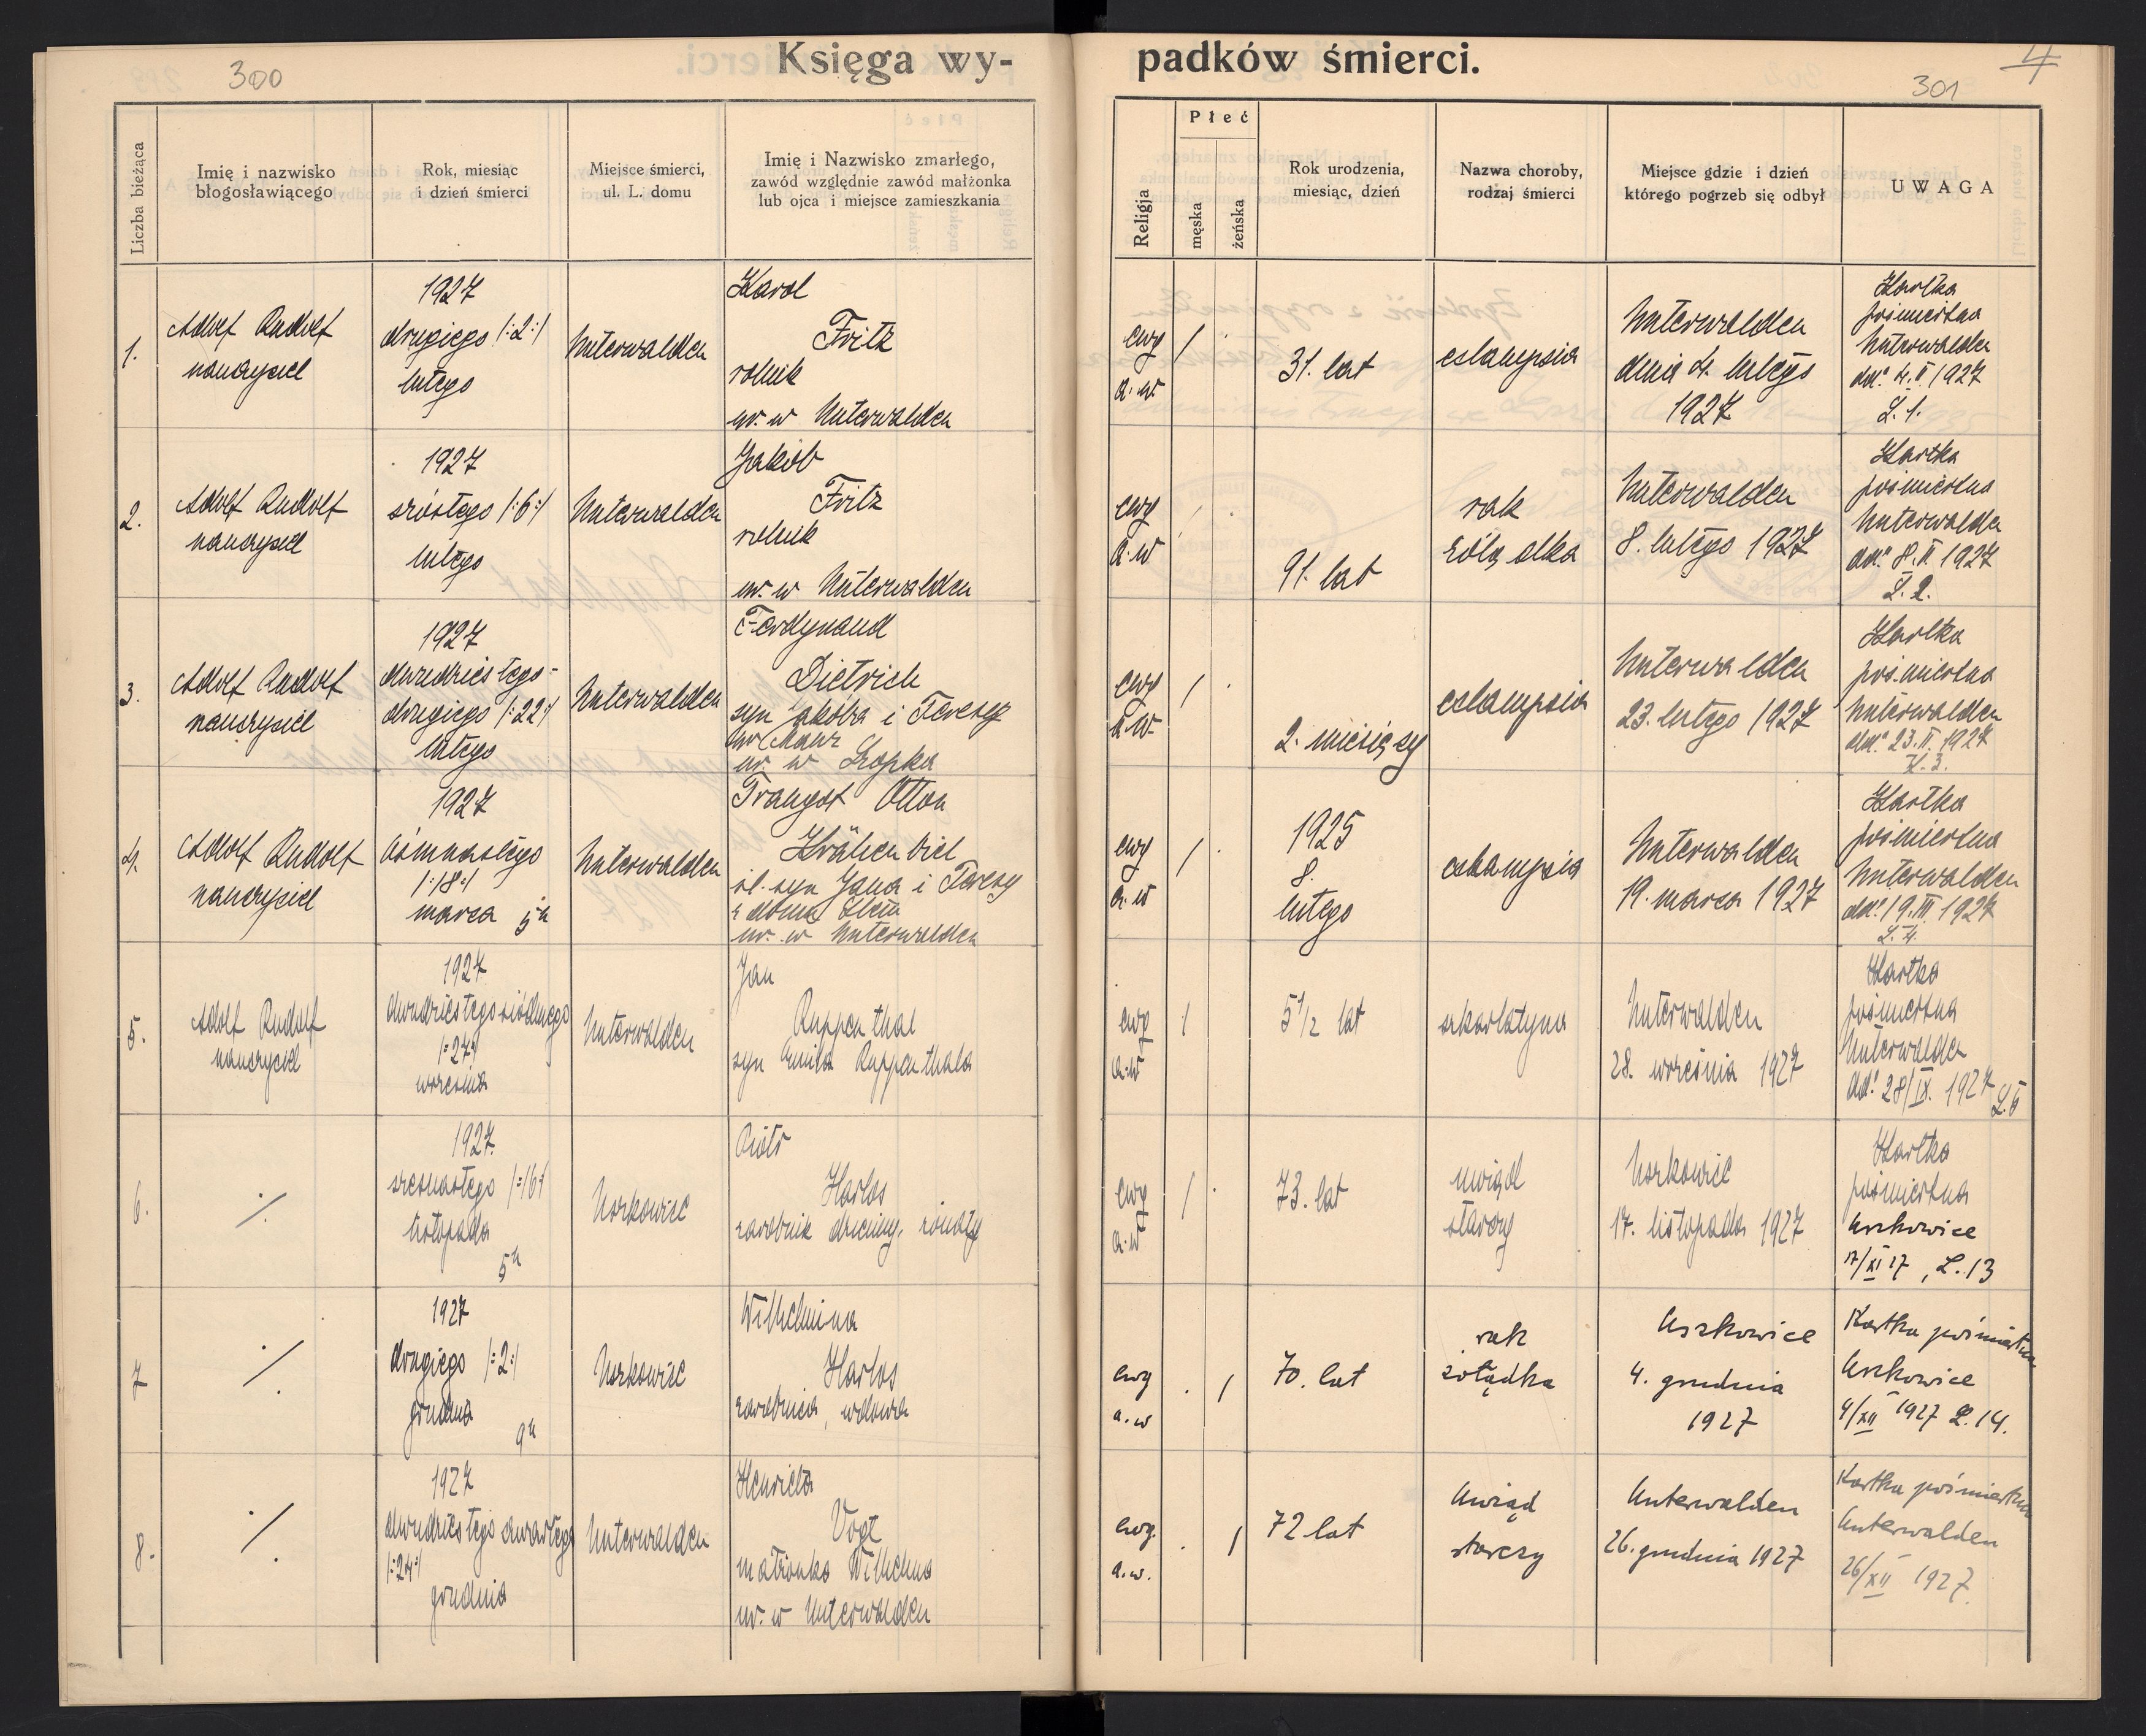 300
Księga wy-
padków śmierci.
4
301
Liczba bieżąca
Imię i nazwisko
błogosławiącego
Rok, miesiąc
i dzień śmierci
Miejsce śmierci,
ul. L. domu
Imię i Nazwisko zmarłego,
zawód względnie zawód małżonka
lub ojca i miejsce zamieszkania
Religja
Płeć
męska
żeńska
Rok urodzenia,
miesiąc, dzień
Nazwa choroby,
rodzaj śmierci
Miejsce gdzie i dzień
którego pogrzeb się odbył
UWAGA
1.
Adolf Rudolf
nauczyciel
1927
drugiego /:2:/
lutego
Unterwalden
Karol
Fritz
rolnik
ur. w Unterwalden
ewg
a.w.
/
31. lat
eslampsia
Unterwalden
dnia 4. lutego
1927
Kartka
pośmiertna
Unterwalden
dd. 4.II.1927
L.1.
2.
Adolf Rudolf
nauczyciel
1927
szóstego /:6:/
lutego
Unterwalden
Jakób
Fritz
rolnik
ur. w Unterwalden
ewg
a.w
/
91. lat
rak
żołądka
Unterwalden
8. lutego 1927
Kartka
pośmiertna
Unterwalden
dd. 8.II.1927
L.2.
3.
Adolf Rudolf
nauczyciel
1927
dwudziestego-
drugiego /:22:/
lutego
Unterwalden
Ferdynand
Dietrich
syn Jakóba i Teresy
ur. w Łopka
ewg
a.w.
/
2. miesiący
eslampsia
Unterwalden
23. lutego 1927
Kartka
pośmiertna
Unterwalden
dd. 23.II.1927
L.3.
4.
Adolf Rudolf
nauczyciel
1927
ósmnastego
/:18:/
marca 5h
Unterwalden
Traugot Otton
Krähenbiel
śl. syn Jana i Teresy
z domu
ur. w Unterwalden
ewg
a.w
/
1925
8.
lutego
eslampsia
Unterwalden
19. marca 1927
Kartka
pośmiertna
Unterwalden
dd. 19.III.1927
L.4.
5.
Adolf Rudolf
nauczyciel
1927
dwudziestegosiódmego
/:27:/
września
Unterwalden
Jan
Ruppenthal
syn Emila Ruppenthala
ewg
a.w
/
5 1/2 lat
szkarlatyna
Unterwalden
28. września 1927
Kartka
pośmiertna
Unterwalden
dd. 28/IX. 1927 L.5
6.
/.
1927.
szesnastego /:16:/
listopada
5h
Uszkowice
Piotr
Harlos
zarobnik dzienny, żonaty
ewg
a.w
/
73. lat
uwiąd
starczy
Uszkowice
17. listopada 1927
Kartka
pośmiertna
Uszkowice
17/XI 27, L.13
7
/.
1927
drugiego /:2:/
grudnia
9h
Uszkowice
Wilhelmina
Harlos
zarobnica, wdowa
ewg
a.w
/
70. lat
rak
żołądka
Uszkowice
4. grudnia
1927
Kartka pośmiertna
Uszkowice
4/XII 1927 L.14.
8.
/.
1927
dwudziestego czwartego
/:24:/
grudnia
Unterwalden
Henrieta
Vogt
małżonka Wilhelma
ur. w Unterwalden
ewg.
a.w.
/
72 lat
Uwiąd
starczy
Unterwalden
26. grudnia 1927
Kartka pośmiertna
Unterwalden
26/XII 1927.